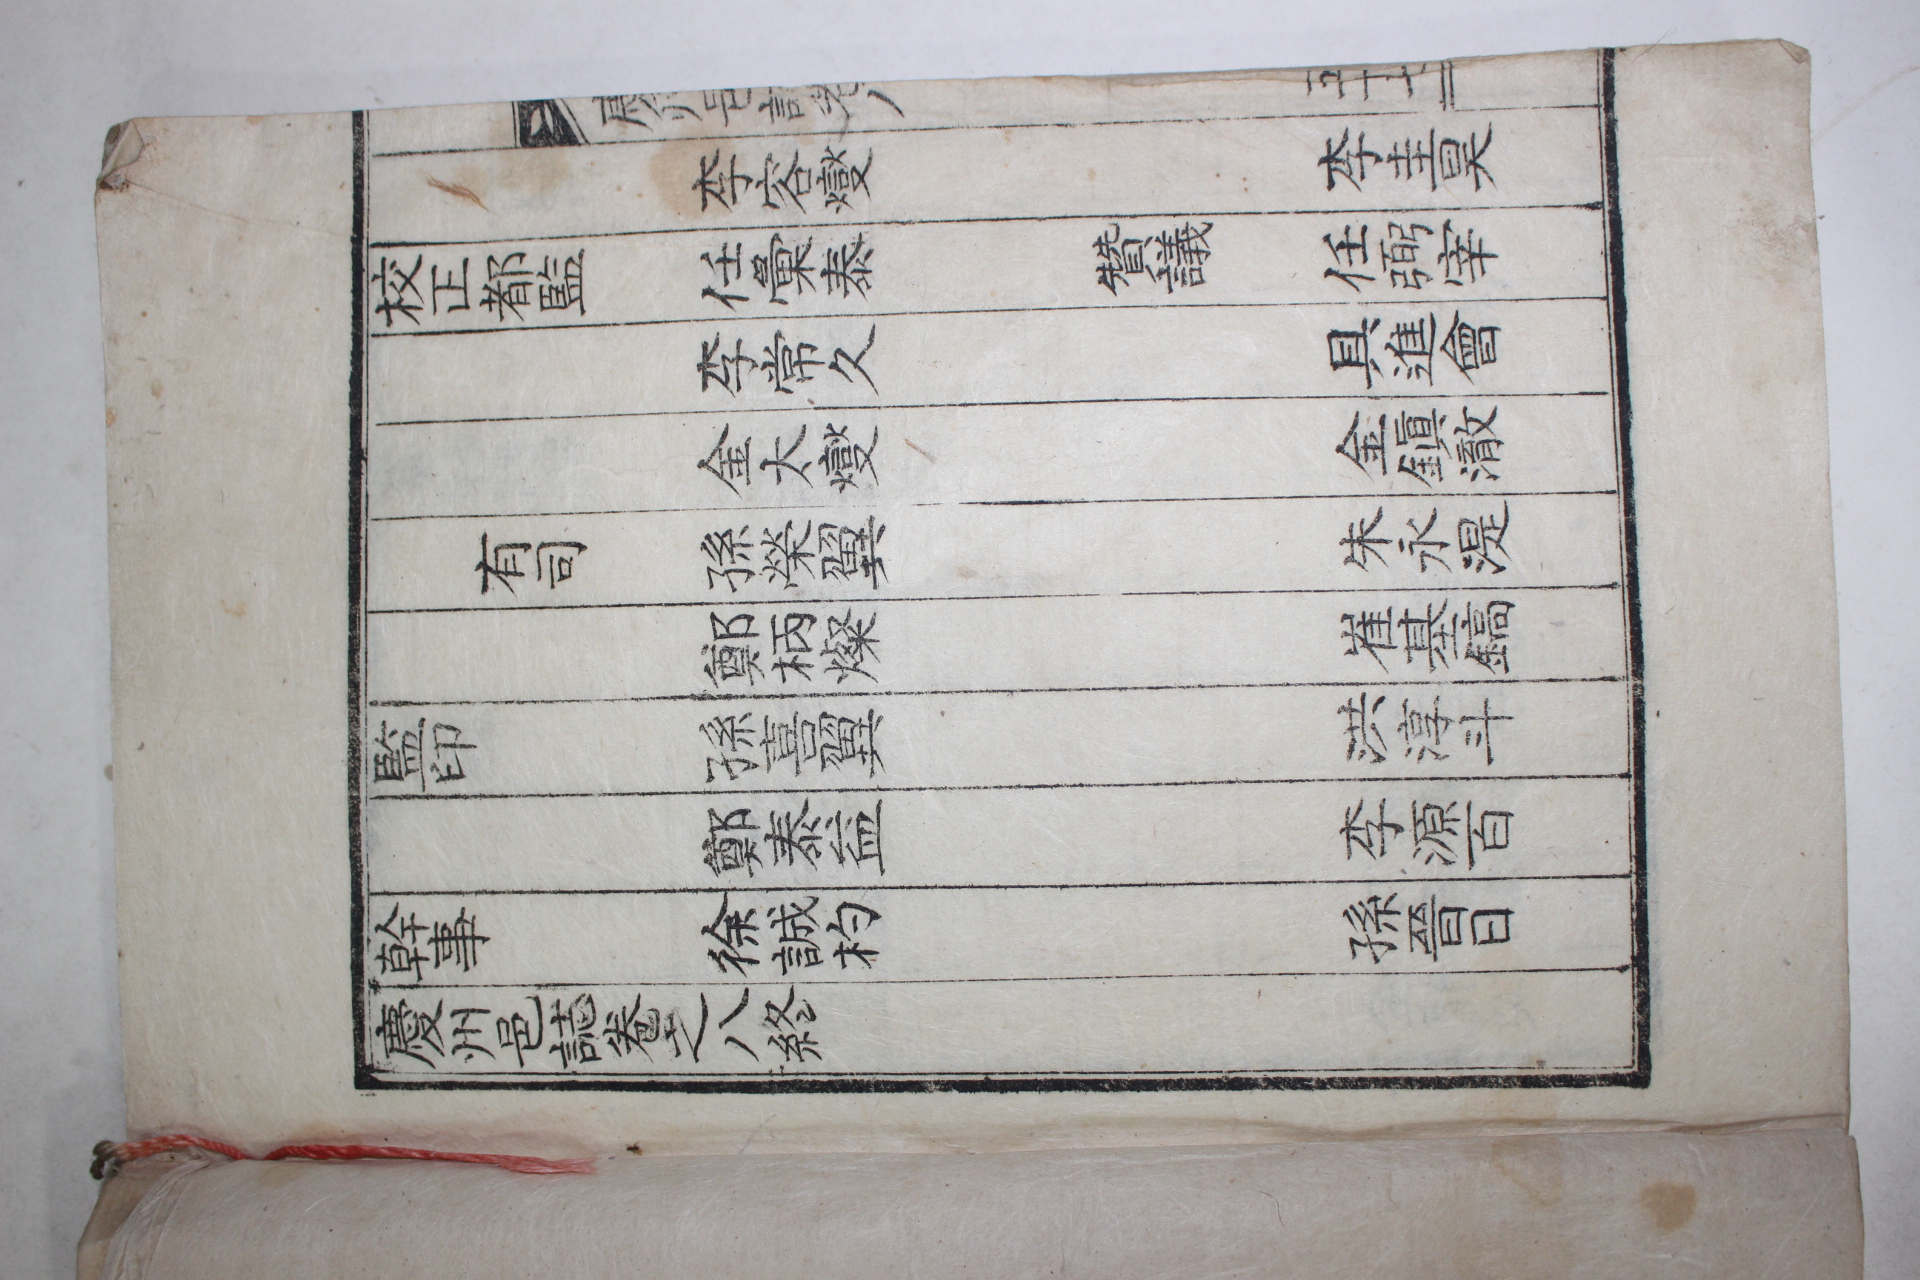 慶州邑誌卷八
五十七
李容燮 李圭昊
校正都監 任彙泰 贊議 任弼宰
李常久 具進會
金太燮 金鎭澈
有司 孫榮翼 朱永湜
鄭柄燦 崔基鎬
監印 孫喜翼 洪淳斗
鄭泰益 李源百
幹事 徐誠杓 孫晉日
慶州邑誌卷之八終